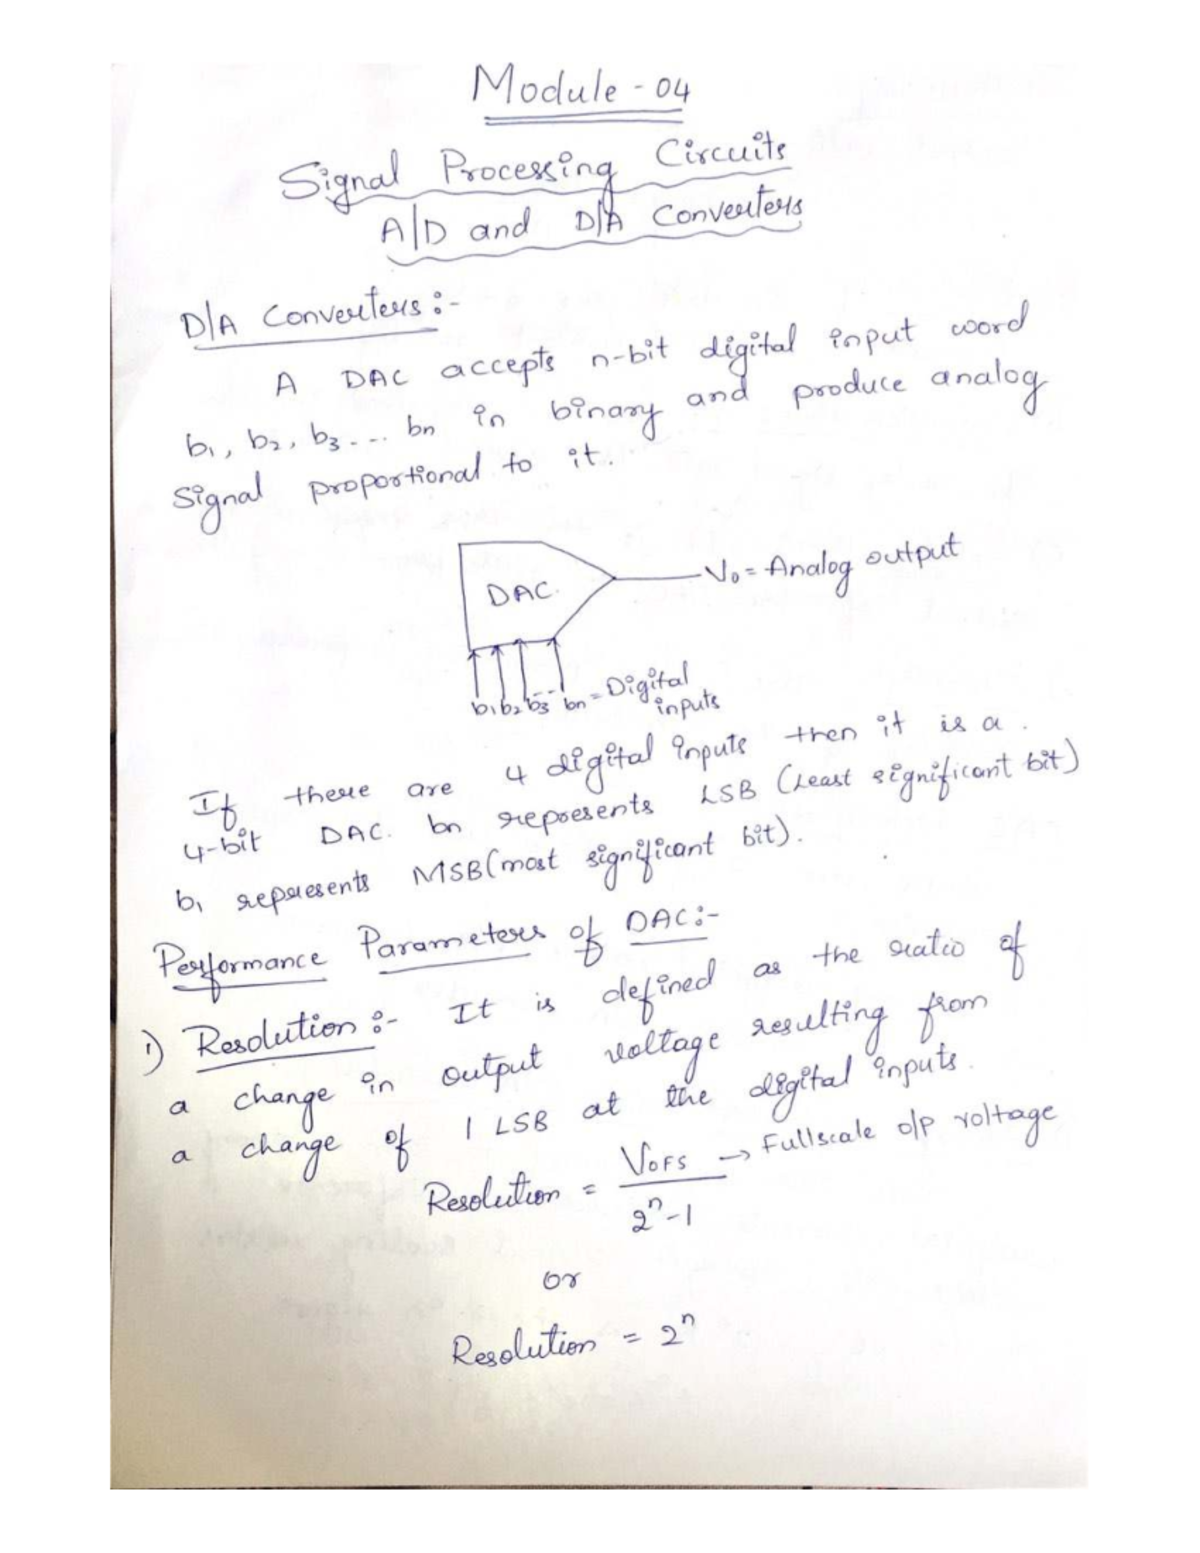 Module - 04
Signal Processing Circuits
A/D and D/A Converters
D/A Converters :-
A DAC accepts n-bit digital input word
b1, b2, b3 --- bn in binary and produce analog
Signal proportional to it.
DAC.
Vo = Analog output
b1 b2 b3 -- bn = Digital
inputs
If there are 4 digital inputs then it is a
4-bit DAC. bn represents LSB (Least significant bit)
b1 represents MSB (most significant bit).
Performance Parameters of DAC :-
1) Resolution :- It is defined as the ratio of
a change in output voltage resulting from
a change of 1 LSB at the digital inputs.
Resolution = VOFS / 2ⁿ-1 → Fullscale o/p voltage
or
Resolution = 2ⁿ